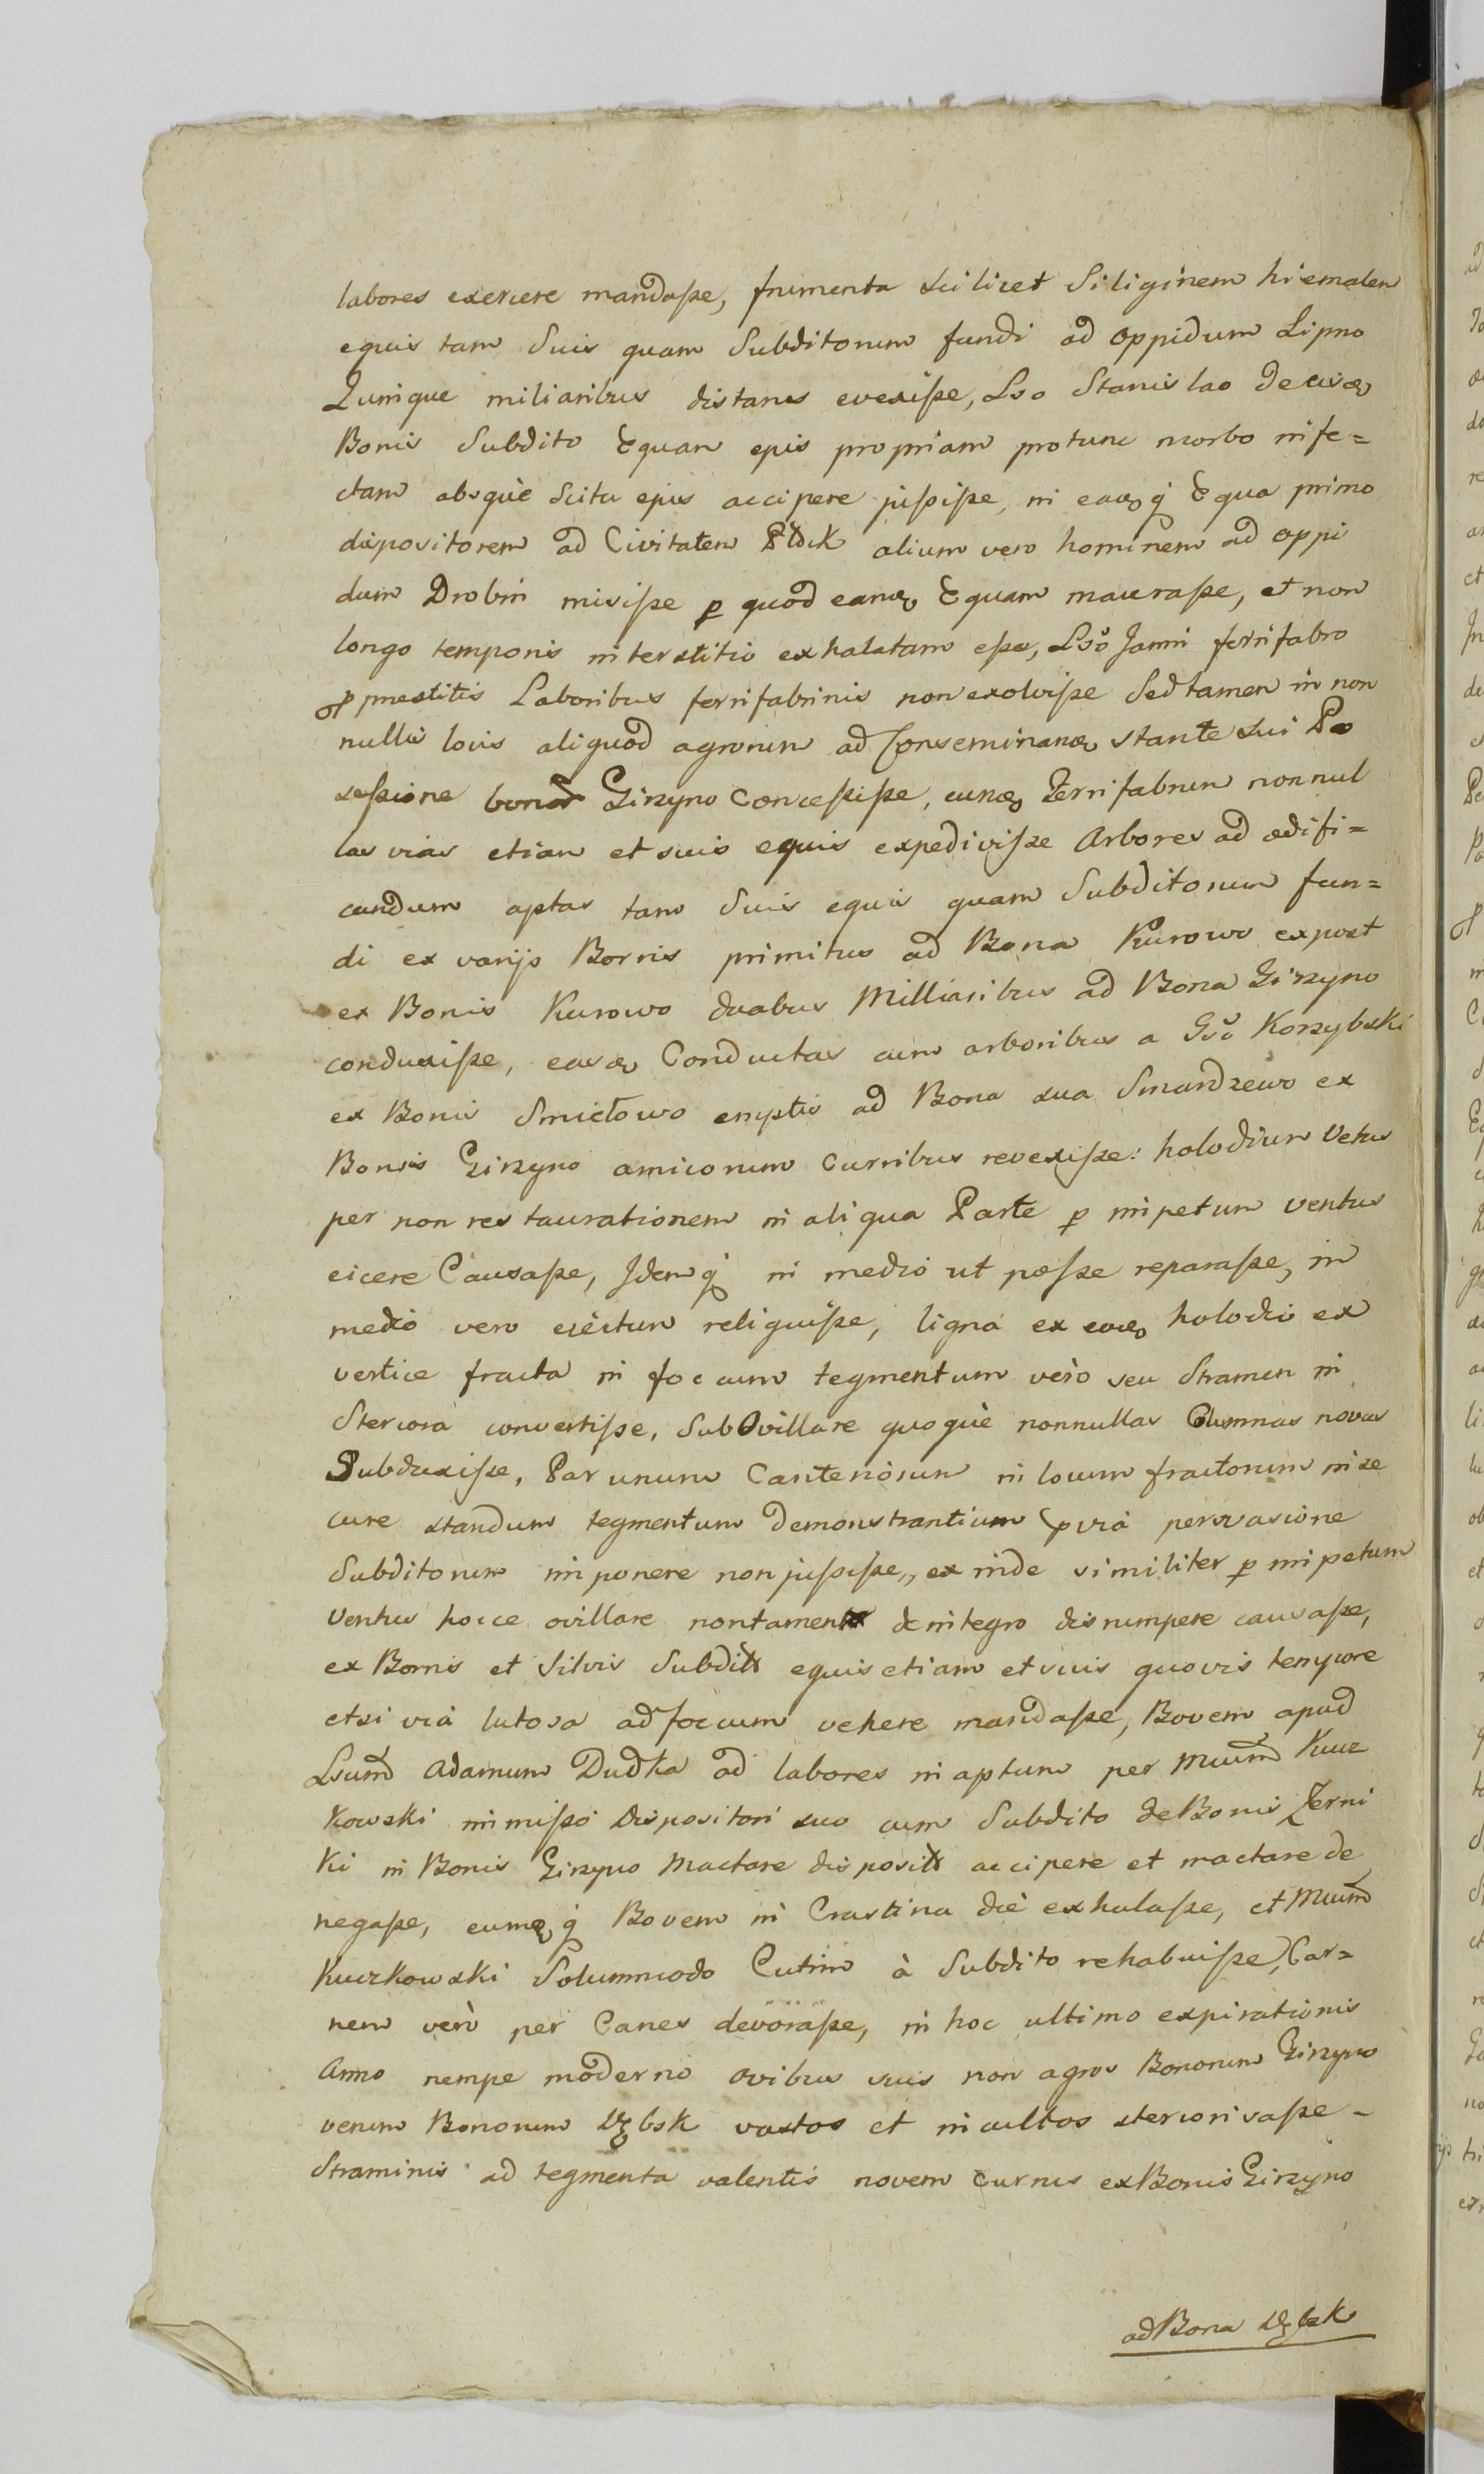 labores exercere mandasse, frumenta scilicet Siliginem hiemalem
equis tam Suis quam Subditorum fundi ad oppidum Lipno
Quinque miliaribus distans evexisse, Lso Stanislao de eisdem
Bonis Subdito Equam ejus propriam protunc morbo infe=
ctam absque Scitu ejus accipere jussisse, in eademq Equa primo
dispositorem ad Civitatem Plock alium vero hominem ad oppi
dum Drobin misisse p quod eandem Equam macrasse, et non
longo temporis interstitio exhalatam esse, Lso Janni ferrifabro
pro prestitis Laboribus ferrifabrinis non exolvisse Sed tamen in non
nullis locis aliquod agrorum ad Conseminandum stante sui Po
sessione bonor Girzyno Concessisse, eundem Ferrifabrum nonnul
las vias etiam et suis equis expedivisse Arbores ad ædifi=
candum aptas tam Suis equis quam Subditorum fun=
di ex varijs Bonis primitus ad Bona Kurowo expost
ex Bonis Kurowo duabus Milliaribus ad Bona Girzyno
conduxisse, easdem Conductas cum arboribus a Gso Korzybski
ex Bonis Smiełowo emptis ad Bona sua Smardzewo ex
Bonis Girzyno amicorum curribus revexisse: holodium Vetus
per non restaurationem in aliqua Parte p impetum ventus
eicere Causasse, Idemq in medio ut posse reparasse, in
medio vero eiectum reliquisse, ligna ex eodem holodio ex
vertice fracta in foccum tegmentum vero seu Stramen in
Stercora convertisse, Sub Ovillare quoque nonnullas Columnas novas
Subduxisse, Par unum Canteriorum in locum fractorum inse
cure standum tegmentum demonstrantium pura persvasione
Subditorum imponere non jussisse, ex inde similiter p impetum
Ventus hocce ovillare nontamen de integro disrumpere causasse,
ex Bonis et Silvis Subdits equis etiam et suis quovis tempore
etsi via lutosa ad foccum vehere mandasse, Bovem apud
Lsum Adamum Dudka ad labores inaptum per Mum Kucz
kowski immisso Dispositori suo cum Subdito de Bonis Zerni
ki in Bonis Girzyno Mactare disposits accipere et mactare de
negasse, eumdemq Bovem in Crastina die exhalasse, et Mum
Kuczkowski Solummodo Cutim à Subdito rehabuisse, Car=
nem verò per Canes devorasse, in hoc ultimo expirationis
Anno nempe moderno ovibus suis non agros Bonorum Girzyno
verum Bonorum Dębsk vastos et incultos stercorisasse –
Straminis ad tegmenta valentis novem currus ex Bonis Girzyno
ad Bona Dębsk